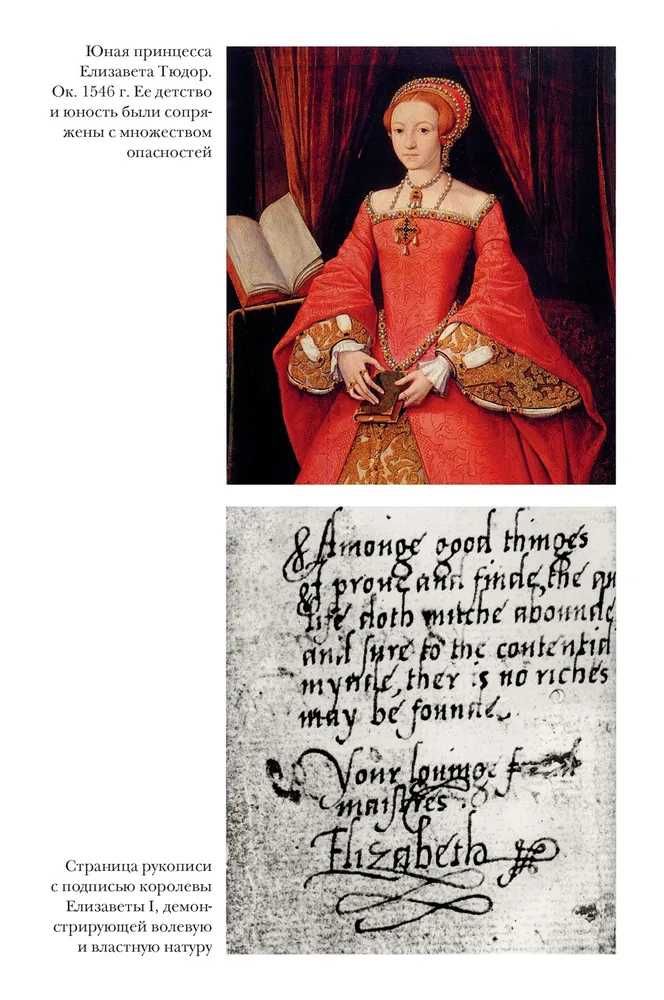 Юная принцесса
Елизавета Тюдор.
Ок. 1546 г. Ее детство
и юность были сопря-
жены с множеством
опасностей
& Amonge good thinges
I prove and finde, the qu
life doth mutche abounde
and sure to the contentid
mynde, ther is no riches
may be founde,
Your lovinge
maistres
Elizabeth
Страница рукописи
с подписью королевы
Елизаветы I, демон-
стрирующей волевую
и властную натуру